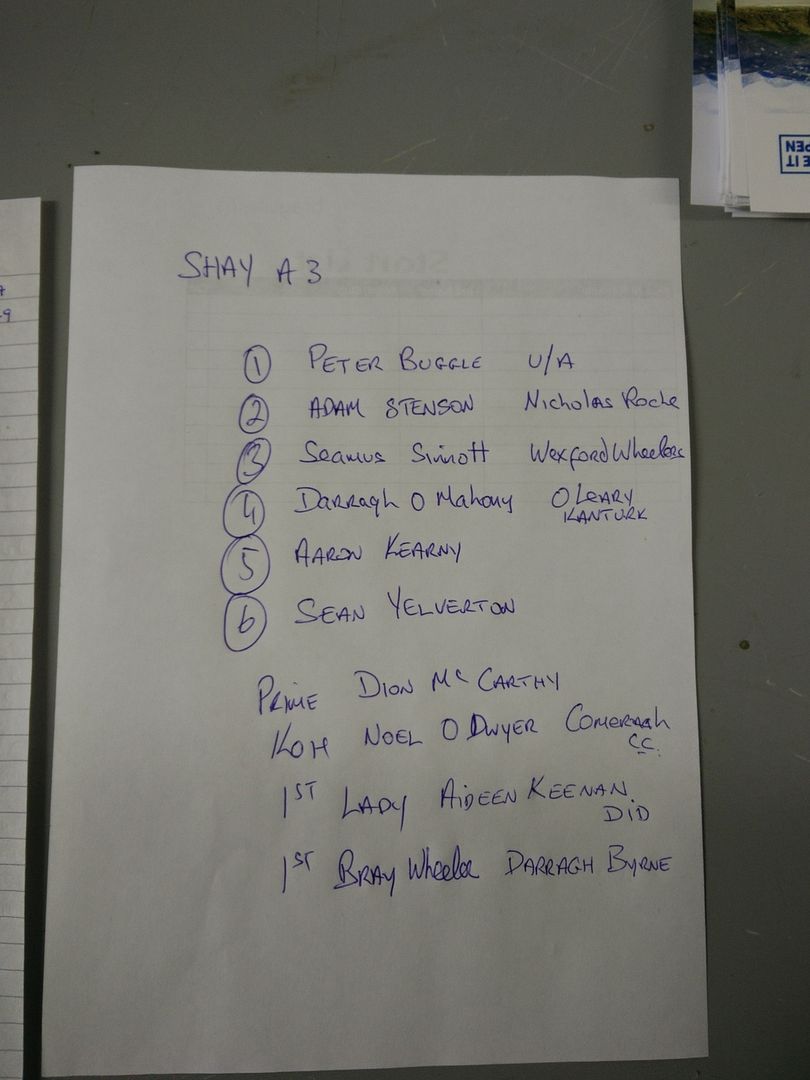 SHAY A3
① PETER BUGGLE U/A
② ADAM STENSON Nicholas Roche
③ Seamus Sinnott Wexford Wheelers
④ Darragh O Mahony O LEARY
KANTURK
⑤ AARON KEARNY
⑥ SEAN YELVERTON
PRIME DION Mc CARTHY
KOH NOEL O DWYER Comeragh
CC.
1ST LADY AIDEEN KEENAN
DID
1ST BRAY Wheeler DARRAGH BYRNE